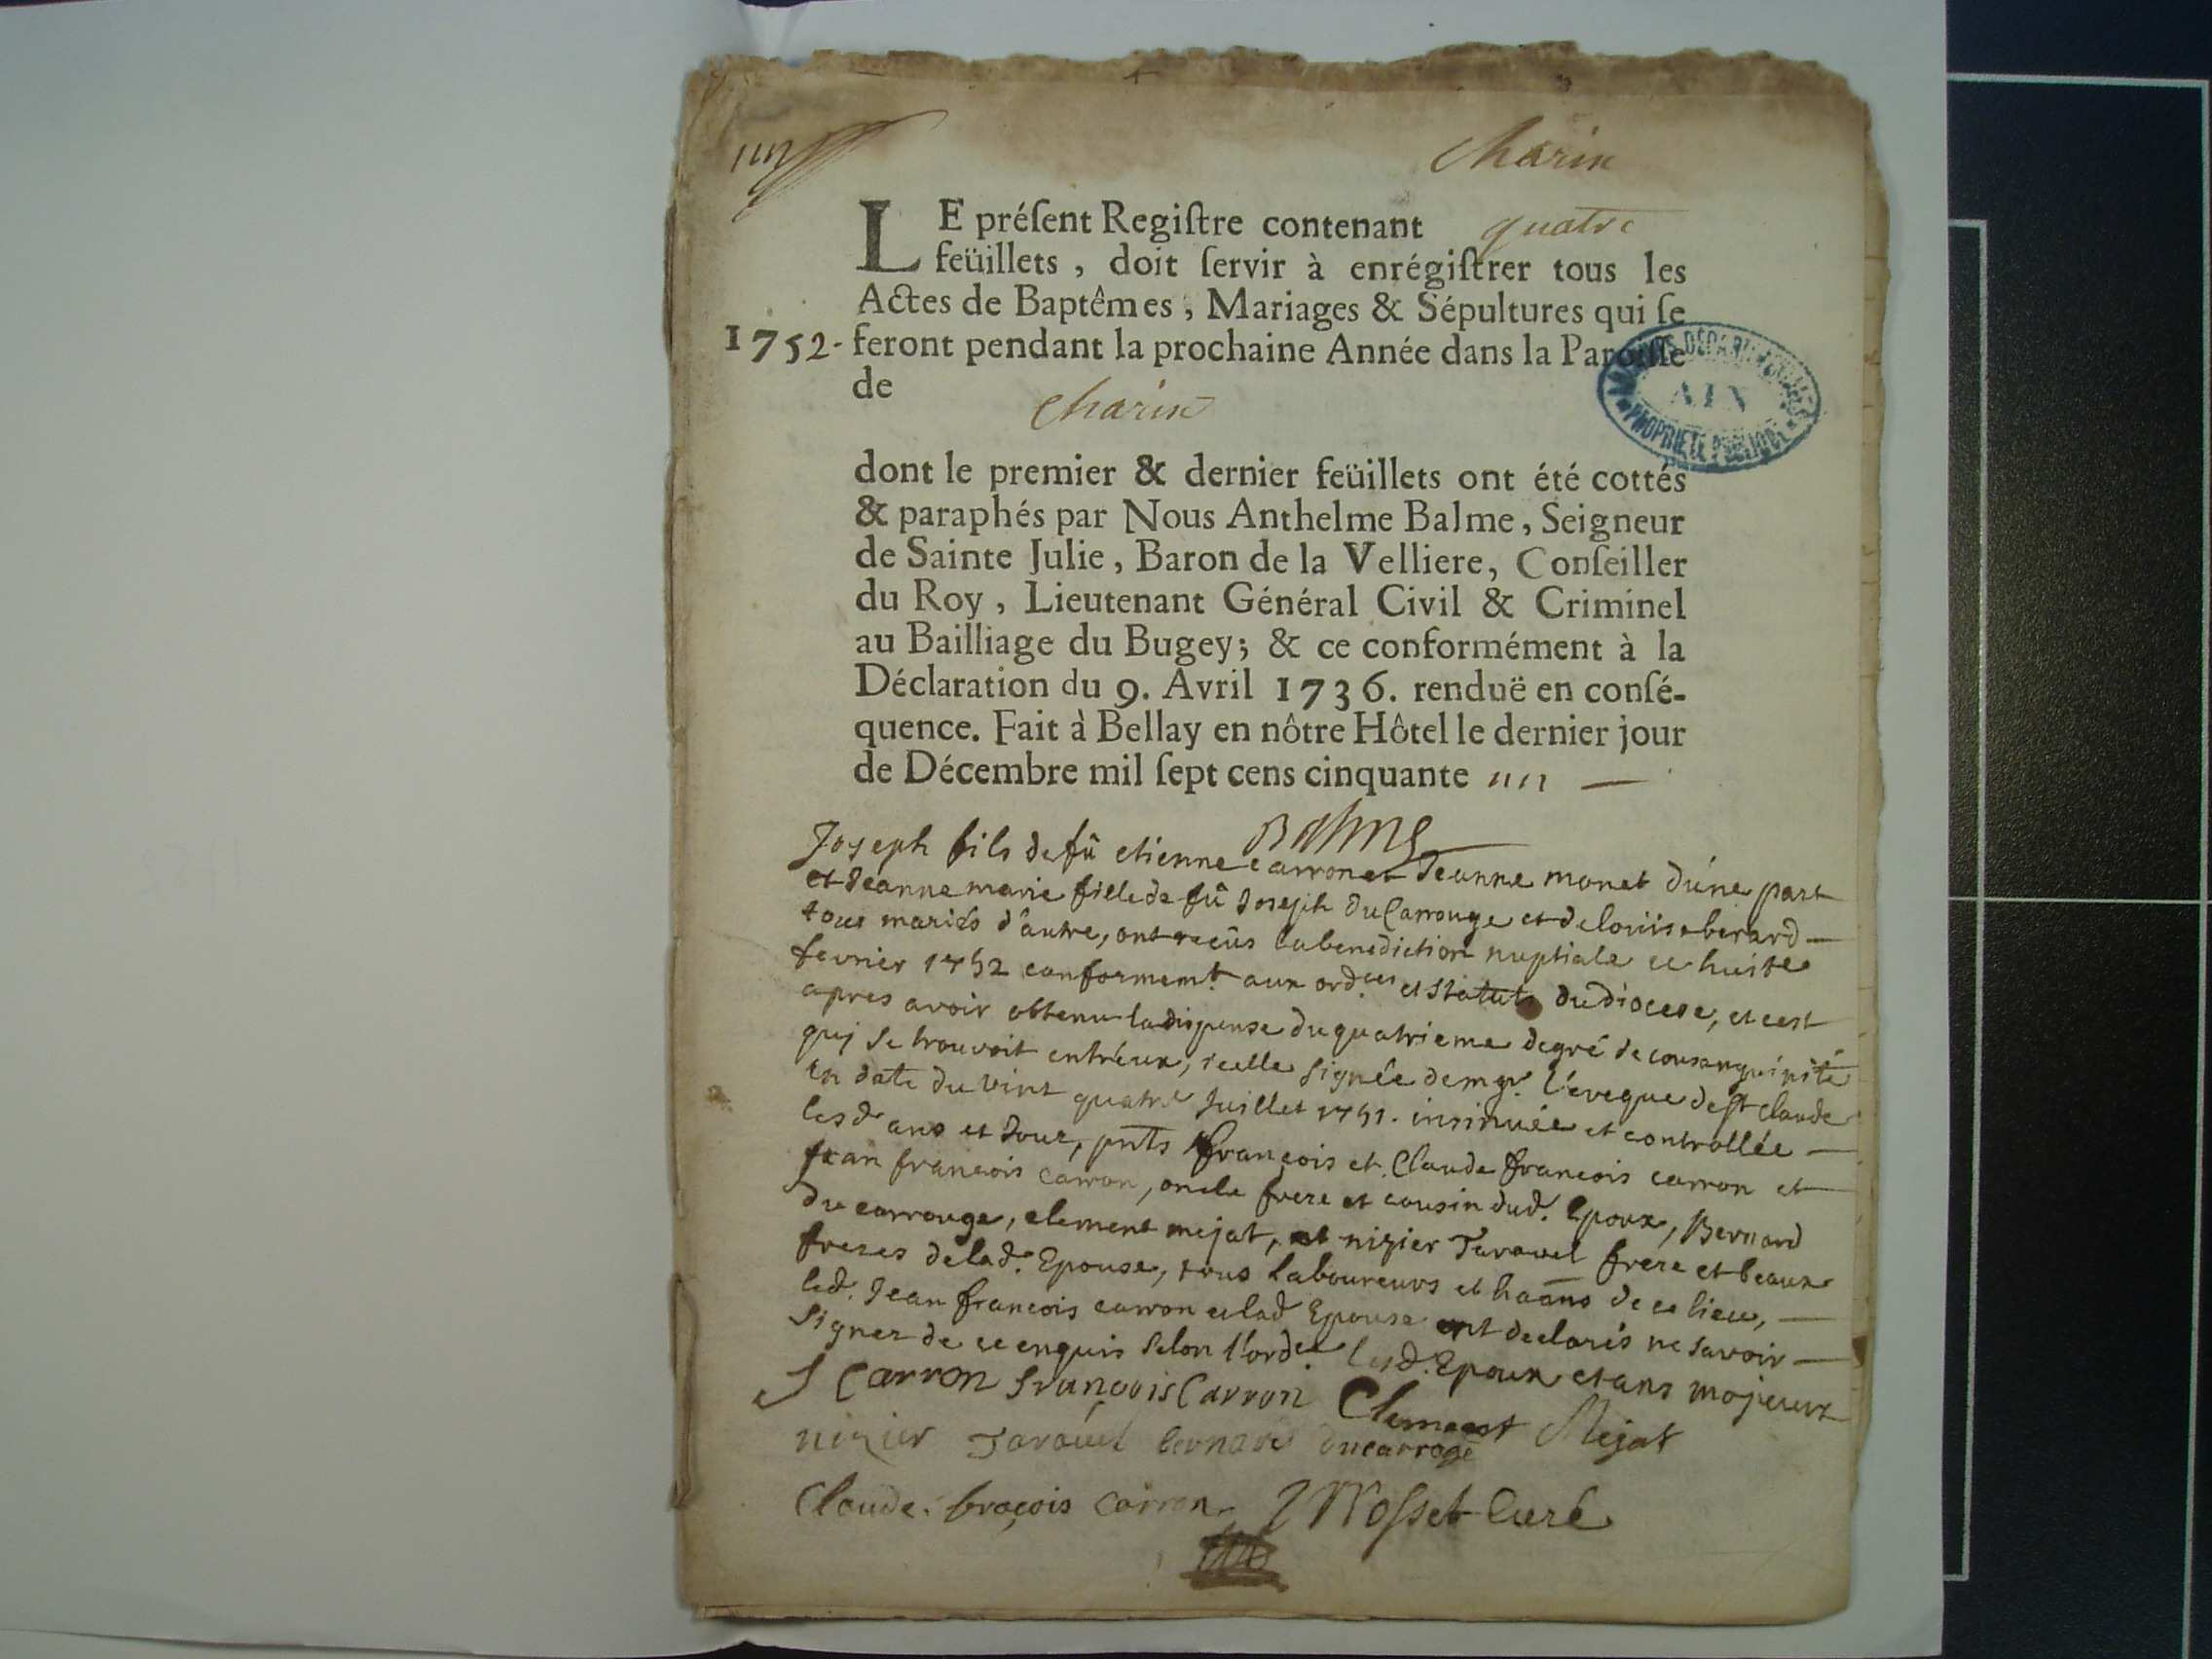 Charix
LE préſent Regiſtre contenant quatre
feüillets, doit ſervir à enrégiſtrer tous les
Actes de Baptêmes, Mariages & Sépultures qui ſe
1752- feront pendant la prochaine Année dans la Paroiſſe
de
Charix
ARCHIVES DÉPARTEMENTALES
AIN
PROPRIÉTÉ PUBLIQUE
dont le premier & dernier feüillets ont été cottés
& paraphés par Nous Anthelme Balme, Seigneur
de Sainte Julie, Baron de la Velliere, Conſeiller
du Roy, Lieutenant Général Civil & Criminel
au Bailliage du Bugey; & ce conformément à la
Déclaration du 9. Avril 1736. renduë en conſé-
quence. Fait à Bellay en nôtre Hôtel le dernier jour
de Décembre mil ſept cens cinquante un —
Balme
Joseph fils de fû etienne carron et Jeanne monet d'une part
et Jeanne marie fille de fû Joseph du Carrouge et de louise berard —
tous mariés d'autre, ont reçûs la benediction nuptiale ce huite
fevrier 1752 conformem.t aux ord.ces et statuts du diocese, et c'est
apres avoir obtenu la dispense du quatrieme degré de consanguinité
qui se trouvoit entr'eux, icelle signée de mgr. l'eveque de st Claude
en date du vint quatre Juillet 1751. insinuée et controllée —
lesd ans et Jour, pnts françois et Claude françois carron et
Jean françois carron, oncle frere et cousin dud. Epoux, Bernard
du carrouge, clement mejat, et nizier Taravel frere et beaux
freres de lad. Epouse, tous laboureurs et haāns de ce lieu, —
led. Jean françois carron et lad Epouse ont declarés ne savoir —
signer de ce enquis selon l'ord.ce lesd. Epoux etans majeurs
J Carron françois Carron Clement Mejat
nizier Taravel bernard ducarroge
Claude. fraçois carron Rosset Curé